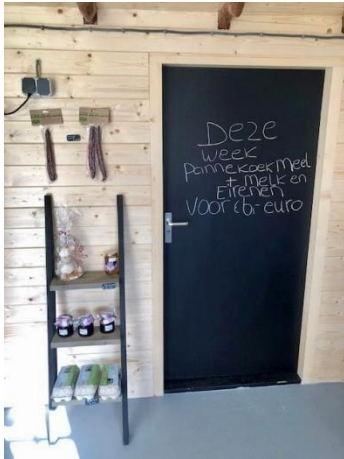 Deze
week
pannekoekmeel
+ melk en
Eirenen
voor € 6,- euro